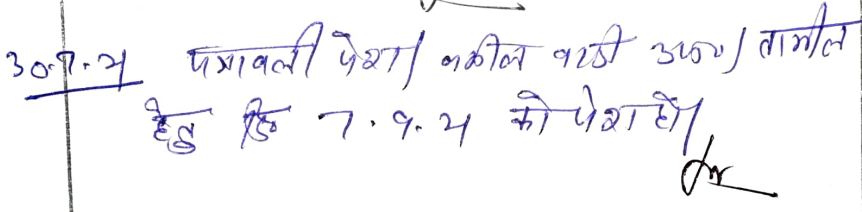 30.7.24 पत्रावली पेश। वकील वादी उप०। तामील
हेतु दि 7.9.24 को पेश हो।